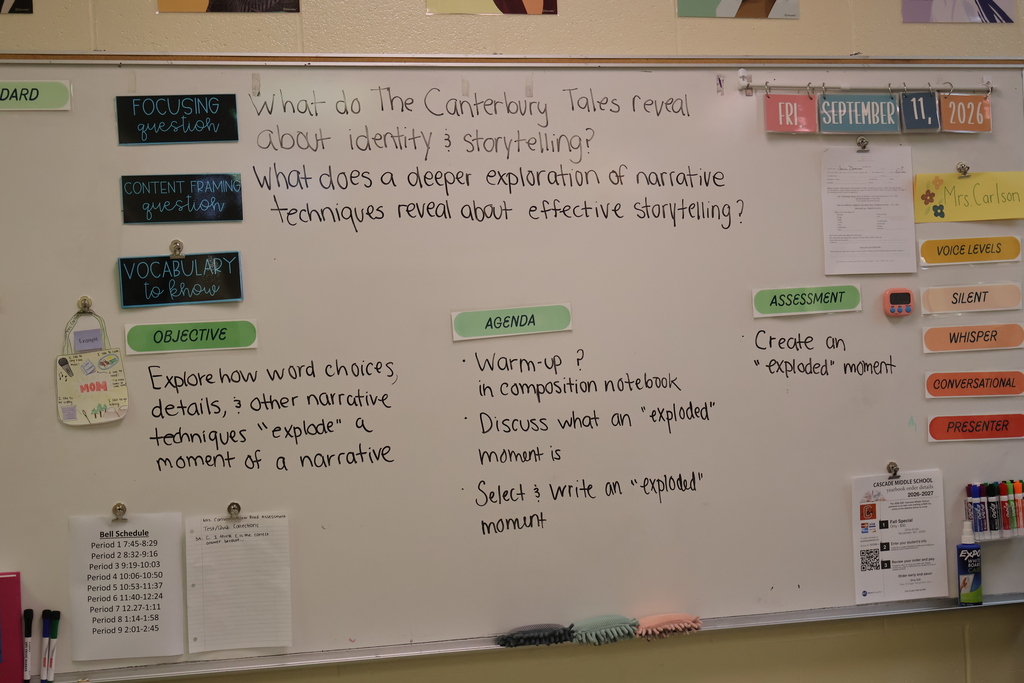 DARD
FOCUSING
question
What do The Canterbury Tales reveal
about identity & storytelling?
CONTENT FRAMING
question
What does a deeper exploration of narrative
techniques reveal about effective storytelling?
VOCABULARY
to know
FRI.
SEPTEMBER
11,
2026
Mrs Carlson
VOICE LEVELS
SILENT
WHISPER
CONVERSATIONAL
PRESENTER
OBJECTIVE
Explore how word choices,
details, & other narrative
techniques "explode" a
moment of a narrative
AGENDA
· Warm-up ?
in composition notebook
· Discuss what an "exploded"
moment is
· Select & write an "exploded"
moment
ASSESSMENT
· Create an
"exploded" moment
MOM
Bell Schedule
Period 1 7:45-8:29
Period 2 8:32-9:16
Period 3 9:19-10:03
Period 4 10:06-10:50
Period 5 10:53-11:37
Period 6 11:40-12:24
Period 7 12:27-1:11
Period 8 1:14-1:58
Period 9 2:01-2:45
Test/Quiz Corrections
CASCADE MIDDLE SCHOOL
yearbook order details
2026-2027
1
2
3
EXPO